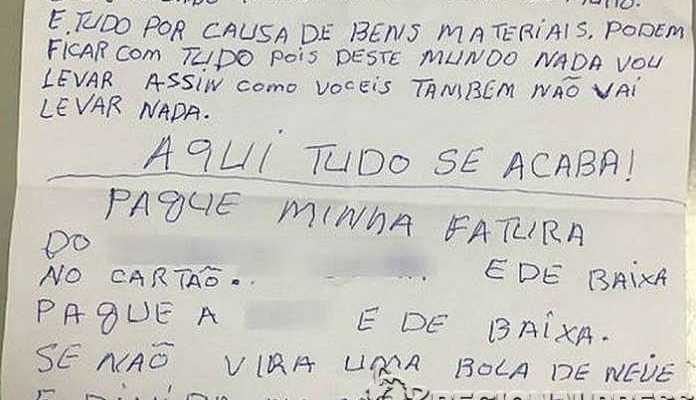 E TUDO POR CAUSA DE BENS MATERIAIS. PODEM
FICAR COM TUDO POIS DESTE MUNDO NADA VOU
LEVAR ASSIN COMO VOCEIS TANBEM NÃO VAI
LEVAR NADA.
AQUI TUDO SE ACABA!
PAGUE MINHA FATURA
DO
NO CARTÃO.. E DE BAIXA
PAGUE A E DE BAIXA.
SE NAÕ VIRA UMA BOLA DE NEVE